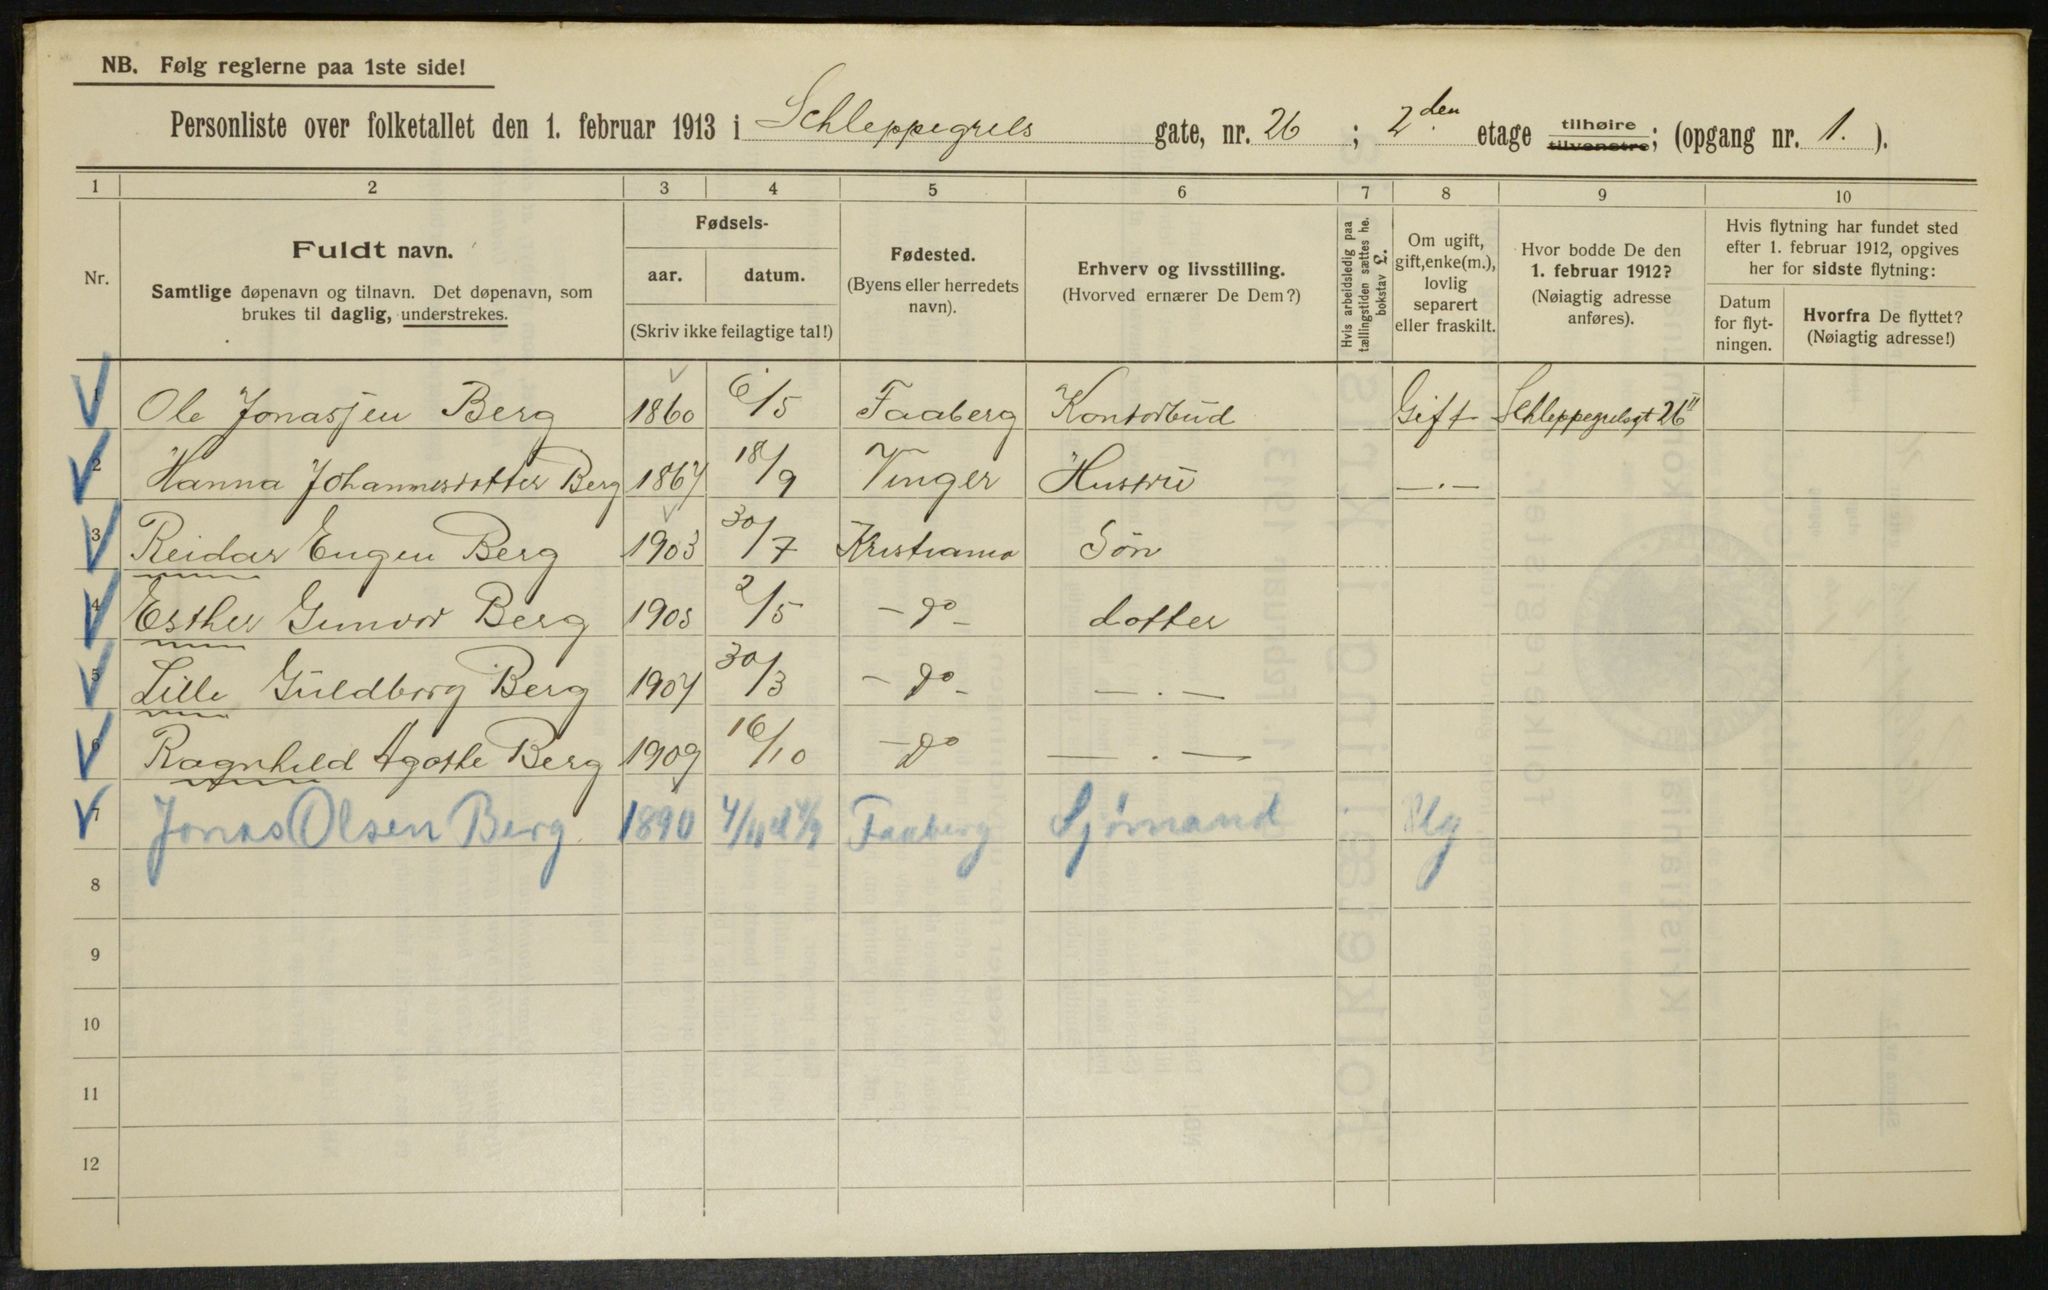 NB. Følg reglerne paa 1ste side!
Personliste over folketallet den 1. februar 1913 i Schleppegrels gate, nr. 26 ; 2den etage tilhøire tilvenstre; (opgang nr. 1. ).
1 2 3 4 5 6 7 8 9 10
Nr.
Fuldt navn.
Samtlige døpenavn og tilnavn. Det døpenavn, som
brukes til daglig, understrekes.
Fødsels-
aar. datum.
(Skriv ikke feilagtige tal!)
Fødested.
(Byens eller herredets
navn).
Erhverv og livsstilling.
(Hvorved ernærer De Dem?)
Hvis arbeidsledig paa
tællingstiden sættes he.
bokstav L.
Om ugift,
gift, enke(m.),
lovlig
separert
eller fraskilt.
Hvor bodde De den
1. februar 1912?
(Nøiagtig adresse
anføres).
Hvis flytning har fundet sted
efter 1. februar 1912, opgives
her for sidste flytning:
Datum
for flyt-
ningen.
Hvorfra De flyttet?
(Nøiagtig adresse!)
1 Ole Jonassen Berg 1860 6/5 Faaberg Kontorbud Gift Schleppegrelsgt 26 II
2 Hanna Johannesdotter Berg 1867 18/9 Vinger Hustru —.—
3 Reidar Eugen Berg 1903 30/7 Kristiania Søn
4 Esther Gunvor Berg 1905 2/5 — do — dotter
5 Lille Guldborg Berg 1907 30/3 — do — —.—
6 Ragnhild Agathe Berg 1909 16/10 — do —.—
7 Jonas Olsen Berg 1890 Faaberg Sjømand Ug
8
9
10
11
12